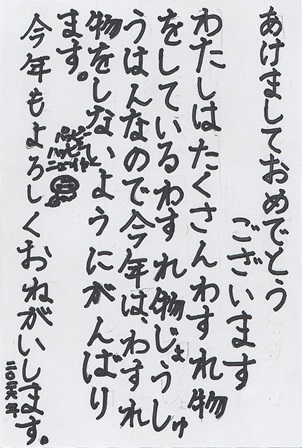 あけましておめでとう
ございます
わたしはたくさんわすれ物
をしているわすれ物じょうしゅ
うはんなので今年は、わすれ
物をしないようにがんばり
ます。
ハッピー
ハッピー
ニューイヤー
今年もよろしくおねがいします。
二〇二六年